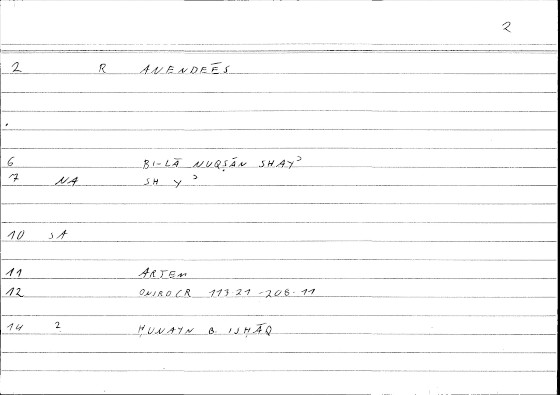 2
2 R ANENDEĒS
6 BI-LĀ NUQṢĀN SHAYʾ
7 NA SH Y ʾ
10 SA
11 ARTEM
12 ONIROCR 113.21 - 208.11
14 2 ḤUNAYN B. ISḤĀQ